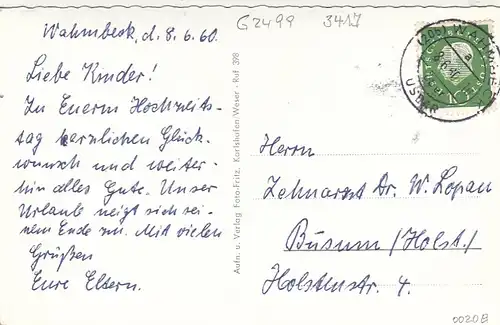 G2499 3417
Wahmbeck, d. 8.6.60.
Liebe Kinder!
Zu Euerm Hochzeits-
tag herzlichen Glück-
wunsch und weiter-
hin alles Gute. Unser
Urlaub neigt sich sei-
nem Ende zu. Mit vielen
Grüßen
Eure Eltern.
Aufn. u. Verlag Foto-Fritz, Karlshafen Weser - Ruf 398
USLAR
10
Herrn
Zahnarzt Dr. W. Lopau
Büsum /Holst./
Holstenstr. 4.
0020B